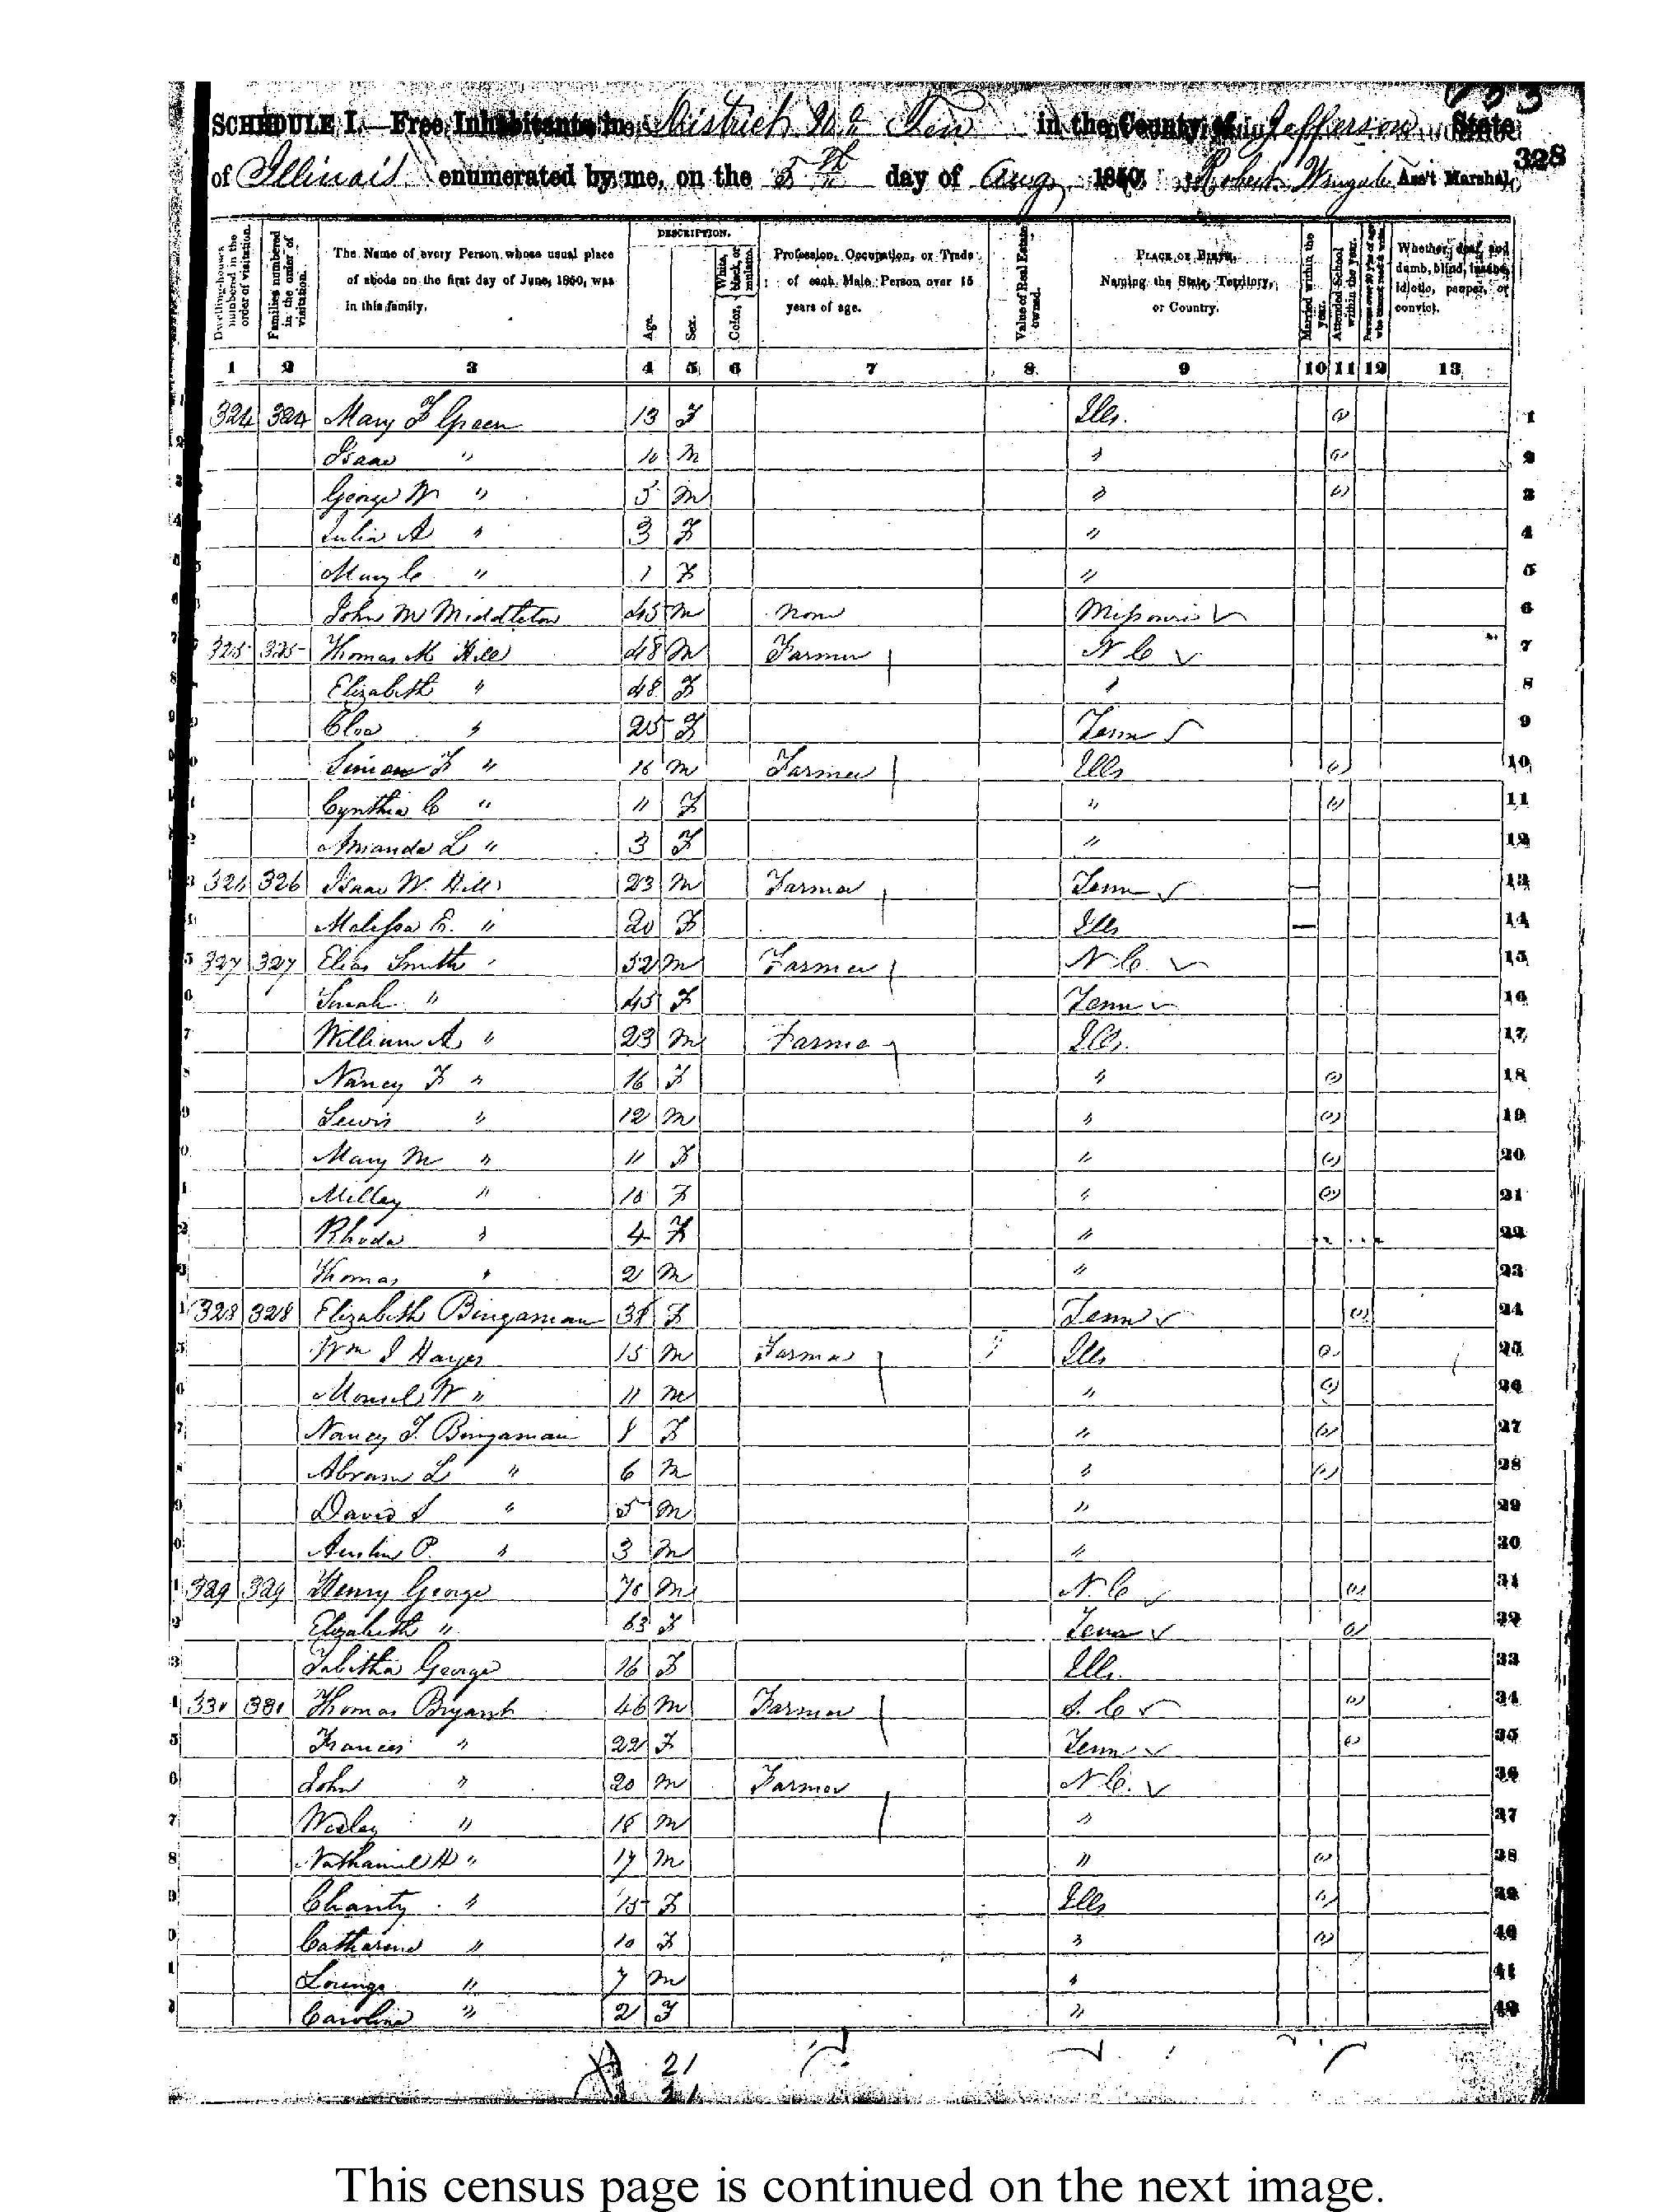 SCHEDULE I.—Free Inhabitants in District No. Ten in the County of Jefferson State
of Illinois enumerated by me, on the 5th day of Aug 1850. Robert Wingate Ass't Marshal.
328
DESCRIPTION.
Dwelling-houses numbered in the order of visitation.
Families numbered in the order of visitation.
The Name of every Person whose usual place of abode on the first day of June, 1850, was in this family.
Age.
Sex.
Color, White, black, or mulatto.
Profession, Occupation, or Trade of each Male Person over 15 years of age.
Value of Real Estate owned.
PLACE OF BIRTH, Naming the State, Territory, or Country.
Married within the year.
Attended School within the year.
Persons over 20 years of age who cannot read & write.
Whether deaf and dumb, blind, insane, idiotic, pauper, or convict.
1 2 3 4 5 6 7 8 9 10 11 12 13
324 324 Mary F Green 13 F Ills. 1
Isaac " 10 M " 2
George W " 5 M " 3
Julia A " 3 F " 4
Mary C " 1 F " 5
John M Middleton 45 M None Missouri 6
325 325 Thomas M Hill 48 M Farmer N C 7
Elizabeth " 48 F " 8
Cloa " 25 F Tenn 9
Simeon F " 16 M Farmer Ills 10
Cynthia C " 11 F " 11
Amanda L " 3 F " 12
326 326 Isaac W. Hill 23 M Farmer Tenn 13
Melissa E. " 20 F Ills 14
327 327 Elias Smith 52 M Farmer N C. 15
Sarah " 45 F Tenn 16
William A " 23 M Farmer Ills. 17
Nancy F " 16 F " 18
Lewis " 12 M " 19
Mary M " 11 F " 20
Milley " 10 F " 21
Rhoda " 4 F " 22
Thomas " 2 M " 23
328 328 Elizabeth Bingaman 38 F Tenn 24
Wm J Hayes 15 M Farmer Ills 25
W " 11 M " 26
Nancy J. Bingaman 8 F " 27
Abram L " 6 M " 28
David S " 5 M " 29
Austin P. " 3 M " 30
329 329 Henry George 70 M N C 31
Elizabeth " 63 F Tenn 32
Tabitha George 16 F Ills. 33
330 330 Thomas Bryant 46 M Farmer S. C 34
Frances " 22 F Tenn 35
John " 20 M Farmer N C. 36
Wesley " 18 M " 37
Nathaniel H " 17 M " 38
Charity " 15 F Ills 39
Catharine " 10 F " 40
Lorenzo " 7 M " 41
Caroline " 2 F " 42
21
This census page is continued on the next image.